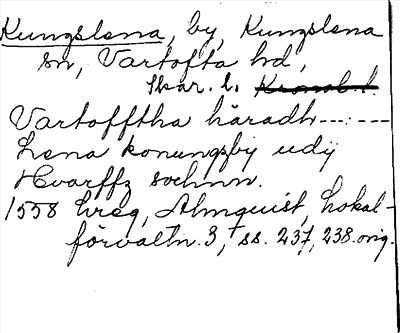 Kungslena, by, Kungslena
sn, Vartofta hd,
Skar. l. Kronob. l.
Vartofftha häradh---:---
Lena konungzby udij
Hvarffz sochnn.
1558 hreg, Almquist, Lokal-
förvaltn. 3, ss. 237, 238. orig.